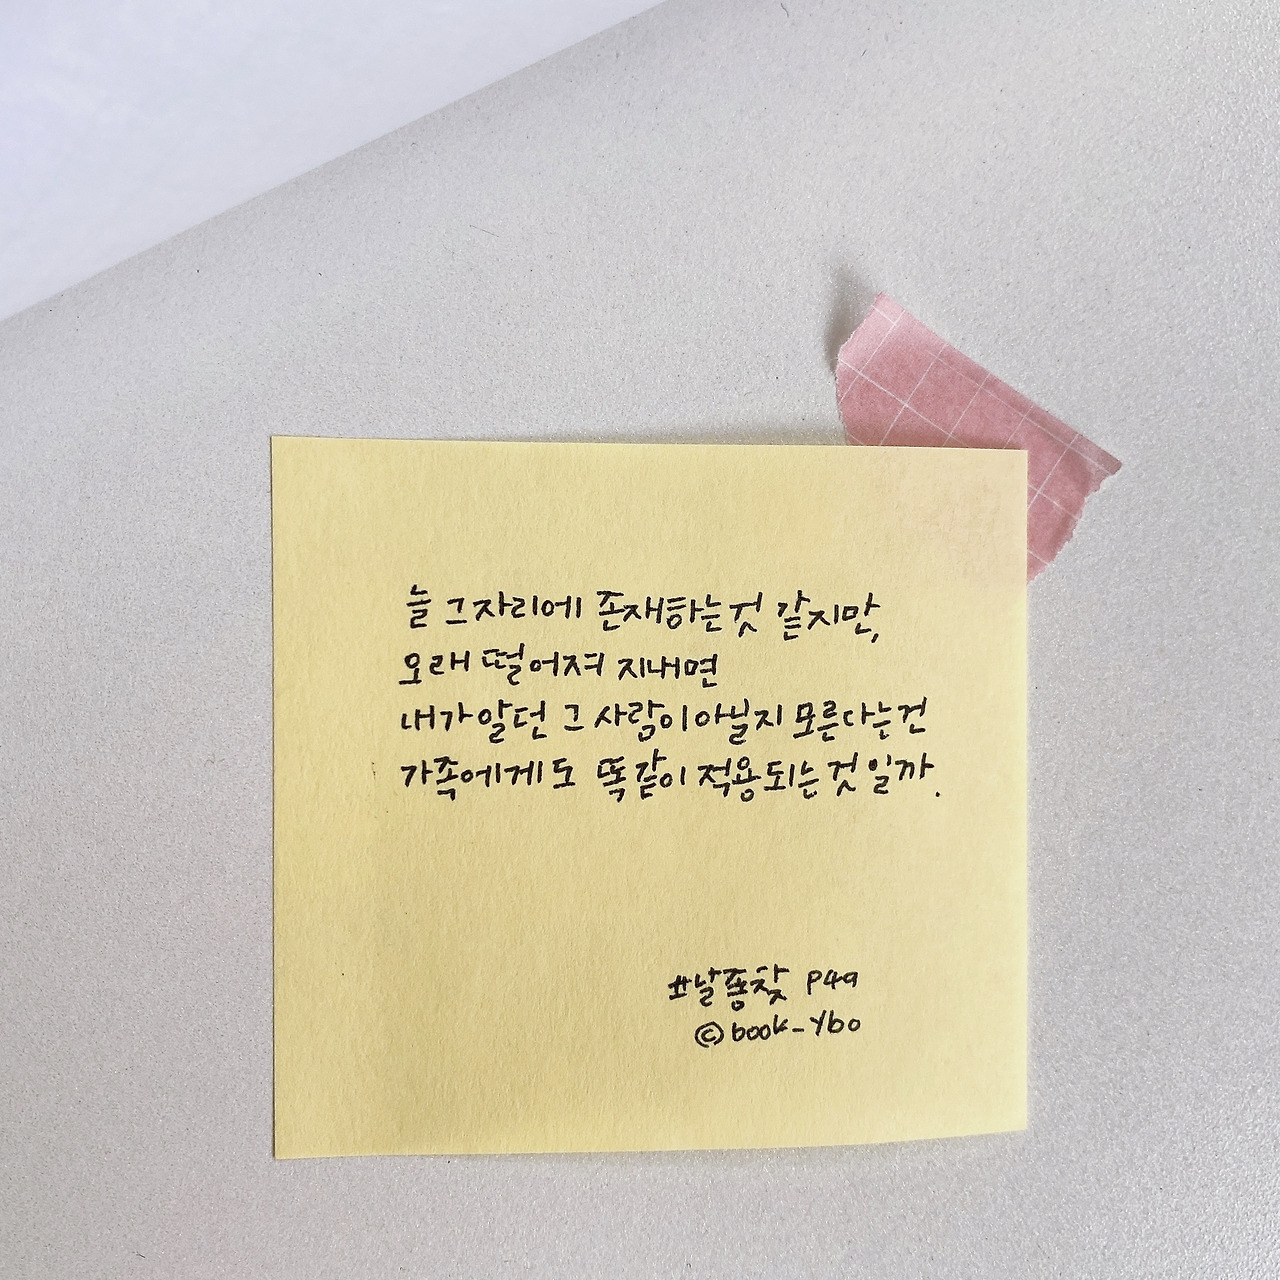 늘 그자리에 존재하는것 같지만,
오래 떨어져 지내면
내가알던 그 사람이아닐지 모른다는건
가족에게도 똑같이 적용되는것 일까.
#날종찾 P49
©book_ybo